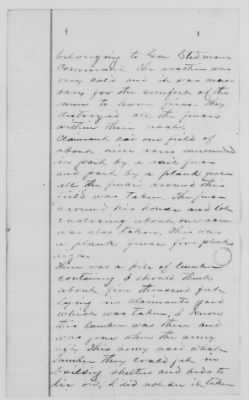 belonging to Gen Stedman
Command. The weather was
very cold and it was neces
sary for the comfort of the
men to have fires. They
destroyed all the fences
within their reach.
Claimant had one field of
about nine acres surrounded
in part by a rail fence
and part by a plank fence
all the fence around this
field was taken. The fence
around his house and lot
enclosing about one acre
was also taken, this was
a plank fence five planks
high.
There was a pile of lumber
containing I should think
about five thousand feet
lying in claimants yard
which was taken, I know
this lumber was there and
was gone when the army
left. This army used what
lumber they could get in
building shelters and beds to
lie on, I did not see it taken